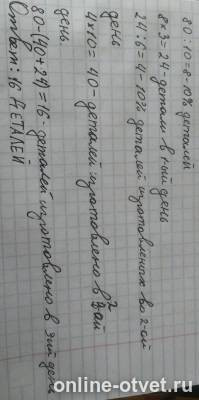 80:10=8-10% деталей
8×3=24-детали в 1-ый день
24:6=4-10% деталей изготовленых во 2-ой
день
4×10=40-деталей изготовлено в 2-ой
день.
80-(40+24)=16-деталей изготовлено в 3ий день
Ответ: 16 деталей
online-otvet.ru